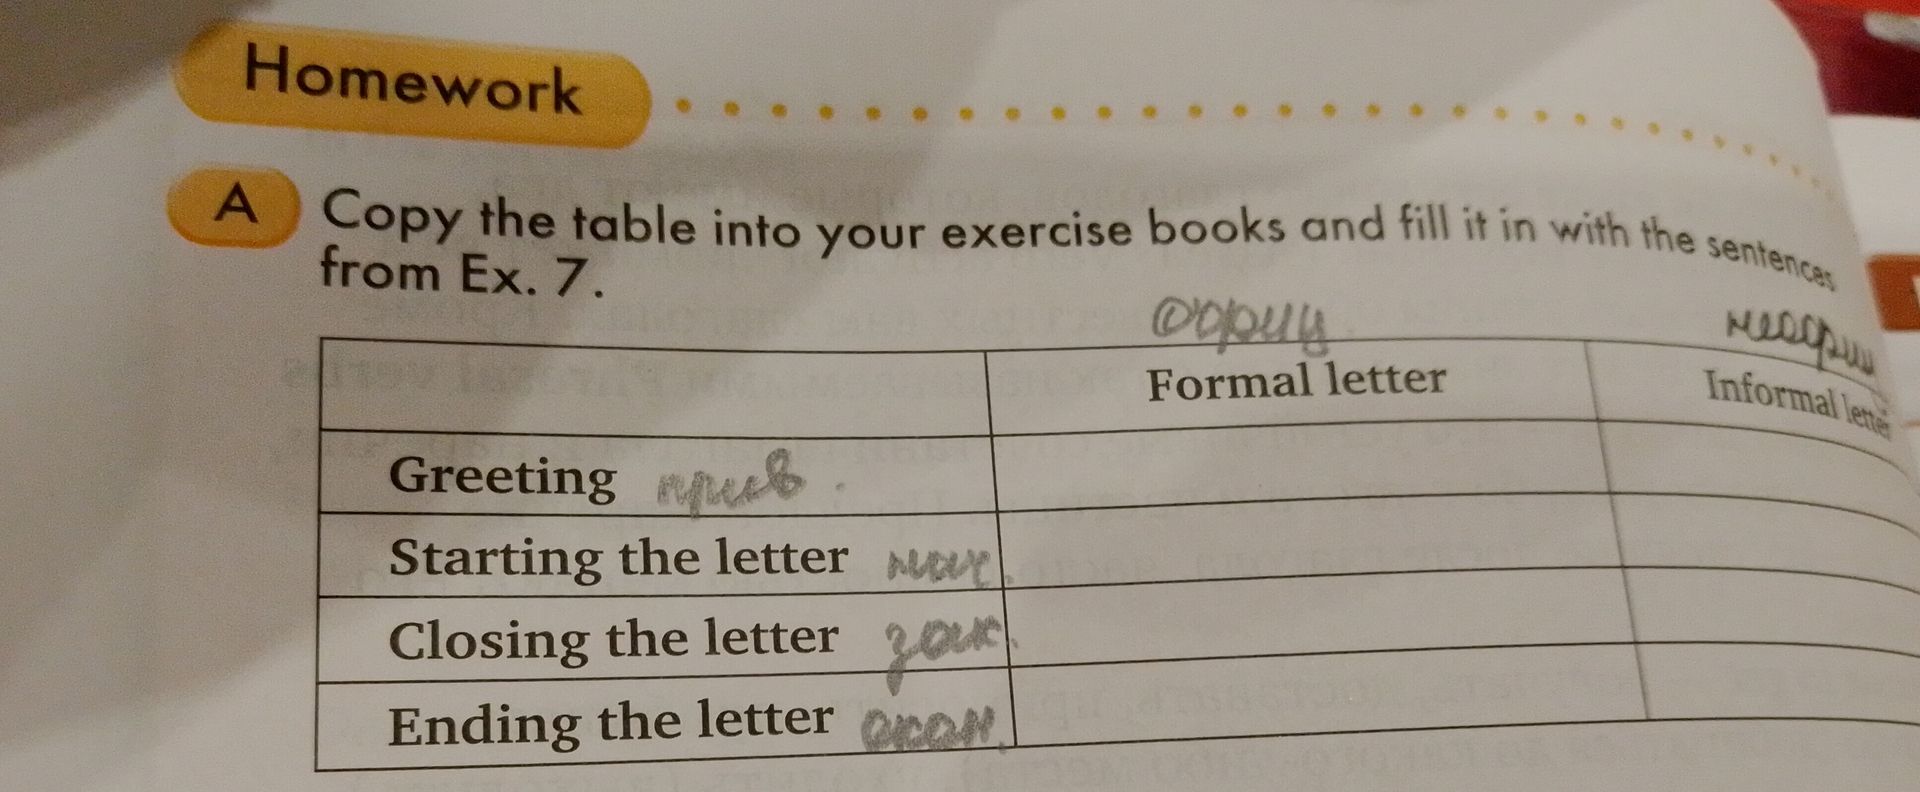 Homework
A Copy the table into your exercise books and fill it in with the sentences
from Ex. 7.
офиц. неофиц
Formal letter Informal letter
Greeting прив.
Starting the letter нач.
Closing the letter закл.
Ending the letter окон.